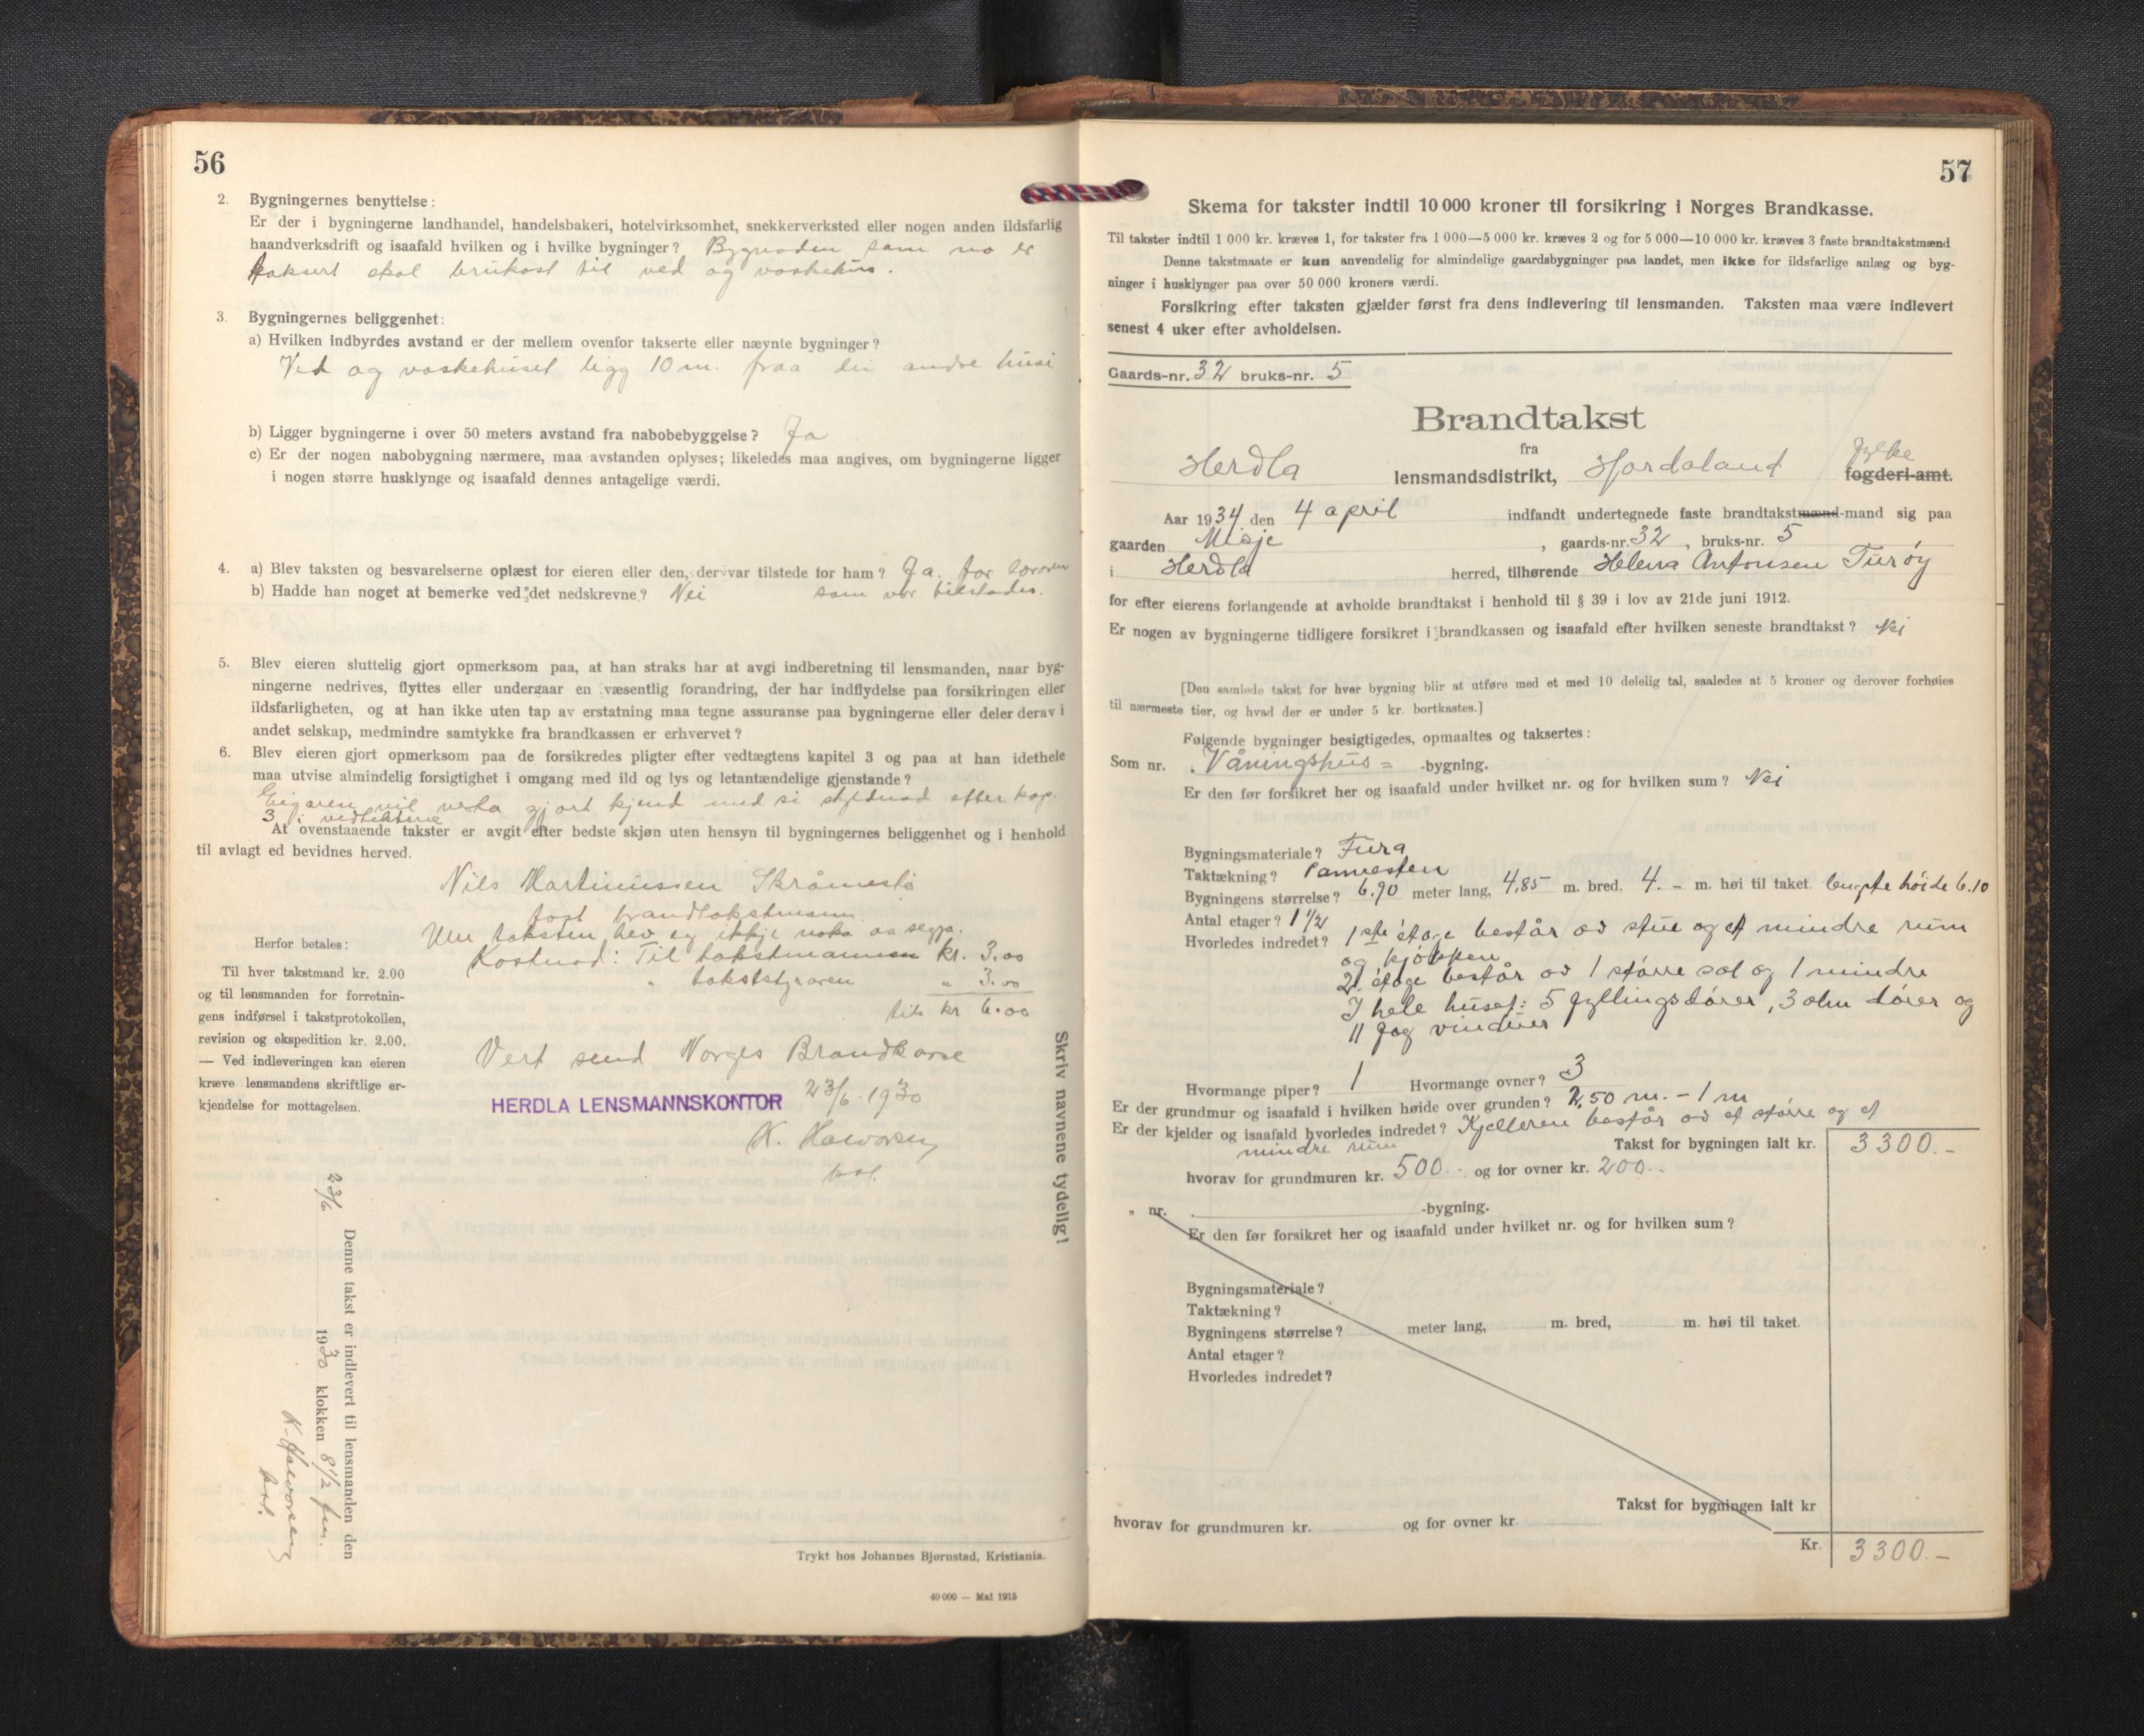 56
2. Bygningernes benyttelse:
Er der i bygningerne landhandel, handelsbakeri, hotelvirksomhet, snekkerverksted eller nogen anden ildsfarlig
haandverksdrift og isaafald hvilken og i hvilke bygninger? Bygnaden som no er
taksert skal brukast til ved og vaskehus.
3. Bygningernes beliggenhet:
a) Hvilken indbyrdes avstand er der mellem ovenfor takserte eller nævnte bygninger?
Ved og vaskehuset ligg 10 m. fraa dei andre husi
b) Ligger bygningerne i over 50 meters avstand fra nabobebyggelse? Ja
c) Er der nogen nabobygning nærmere, maa avstanden oplyses; likeledes maa angives, om bygningerne ligger
i nogen større husklynge og isaafald dennes antagelige værdi.
4. a) Blev taksten og besvarelserne oplæst for eieren eller den, der var tilstede for ham? Ja. for
b) Hadde han noget at bemerke ved det nedskrevne? Nei som var tilstades.
5. Blev eieren sluttelig gjort opmerksom paa, at han straks har at avgi indberetning til lensmanden, naar byg-
ningerne nedrives, flyttes eller undergaar en væsentlig forandring, der har indflydelse paa forsikringen eller
ildsfarligheten, og at han ikke uten tap av erstatning maa tegne assuranse paa bygningerne eller deler derav i
andet selskap, medmindre samtykke fra brandkassen er erhvervet?
6. Blev eieren gjort opmerksom paa de forsikredes pligter efter vedtægtens kapitel 3 og paa at han idethele
maa utvise almindelig forsigtighet i omgang med ild og lys og letantændelige gjenstande?
Eigaren vil verta gjort kjend med si skyldnad efter kap.
3 i vedtektene
At ovenstaaende takster er avgit efter bedste skjøn uten hensyn til bygningernes beliggenhet og i henhold
til avlagt ed bevidnes herved.
Nils Martinussen Skråmestø
fast brandtakstmann.
Um taksten hev eg ikkje noko aa segja.
Kostnad: Til takstmannen kr. 3.00
" takststyraren " 3.00
tils kr 6.00
Herfor betales:
Til hver takstmand kr. 2.00
og til lensmanden for forretnin-
gens indførsel i takstprotokollen,
revision og ekspedition kr. 2.00.
— Ved indleveringen kan eieren
kræve lensmandens skriftlige er-
kjendelse for mottagelsen.
Vert send Norges Brandkasse
HERDLA LENSMANNSKONTOR 23/6 1930
K. Halvorsen
pol.
Skriv navnene tydelig!
Denne takst er indlevert til lensmanden den
23/6 1930 klokken 8 1/2 fm.
K. Halvorsen
pol.
Trykt hos Johannes Bjørnstad, Kristiania.
40 000 — Mai 1915
57
Skema for takster indtil 10 000 kroner til forsikring i Norges Brandkasse.
Til takster indtil 1 000 kr. kræves 1, for takster fra 1 000—5 000 kr. kræves 2 og for 5 000—10 000 kr. kræves 3 faste brandtakstmænd
Denne takstmaate er kun anvendelig for almindelige gaardsbygninger paa landet, men ikke for ildsfarlige anlæg og byg-
ninger i husklynger paa over 50 000 kroners værdi.
Forsikring efter taksten gjælder først fra dens indlevering til lensmanden. Taksten maa være indlevert
senest 4 uker efter avholdelsen.
Gaards-nr. 32 bruks-nr. 5
Brandtakst
fra
Herdla lensmandsdistrikt, Hordaland fylke fogderi-amt.
Aar 1934 den 4 april indfandt undertegnede faste brandtakstmænd-mand sig paa
gaarden Misje, gaards-nr. 32, bruks-nr. 5
i Herdla herred, tilhørende Helena Antonsen Turøy
for efter eierens forlangende at avholde brandtakst i henhold til § 39 i lov av 21de juni 1912.
Er nogen av bygningerne tidligere forsikret i brandkassen og isaafald efter hvilken seneste brandtakst? Nei
[Den samlede takst for hver bygning blir at utføre med et med 10 delelig tal, saaledes at 5 kroner og derover forhøies
til nærmeste tier, og hvad der er under 5 kr. bortkastes.]
Følgende bygninger besigtigedes, opmaaltes og taksertes:
Som nr. Våningshus = -bygning.
Er den før forsikret her og isaafald under hvilket nr. og for hvilken sum? Nei
Bygningsmateriale? Fura
Taktækning? Pannesten
Bygningens størrelse? 6.90 meter lang, 4,85 m. bred, 4.- m. høi til taket. lengste höide 6.10
Antal etager? 1 1/2
Hvorledes indredet? 1ste etage består av stue og et mindre rum
og kjøkken
2. etage består av 1 större sal og 1 mindre
I hele huset: 5 fyllingsdører, 3 alm dører og
11 fag vinduer
Hvormange piper? 1 Hvormange ovner? 3
Er der grundmur og isaafald i hvilken høide over grunden? 2,50 m. - 1 m
Er der kjelder og isaafald hvorledes indredet? Kjelleren består av et større og et
mindre rum
Takst for bygningen ialt kr. 3300.-
hvorav for grundmuren kr. 500.- og for ovner kr. 200.-
" nr. -bygning.
Er den før forsikret her og isaafald under hvilket nr. og for hvilken sum?
Bygningsmateriale?
Taktækning?
Bygningens størrelse? meter lang, m. bred, m. høi til taket.
Antal etager?
Hvorledes indredet?
Takst for bygningen ialt kr
hvorav for grundmuren kr. og for ovner kr
Kr. 3300.-